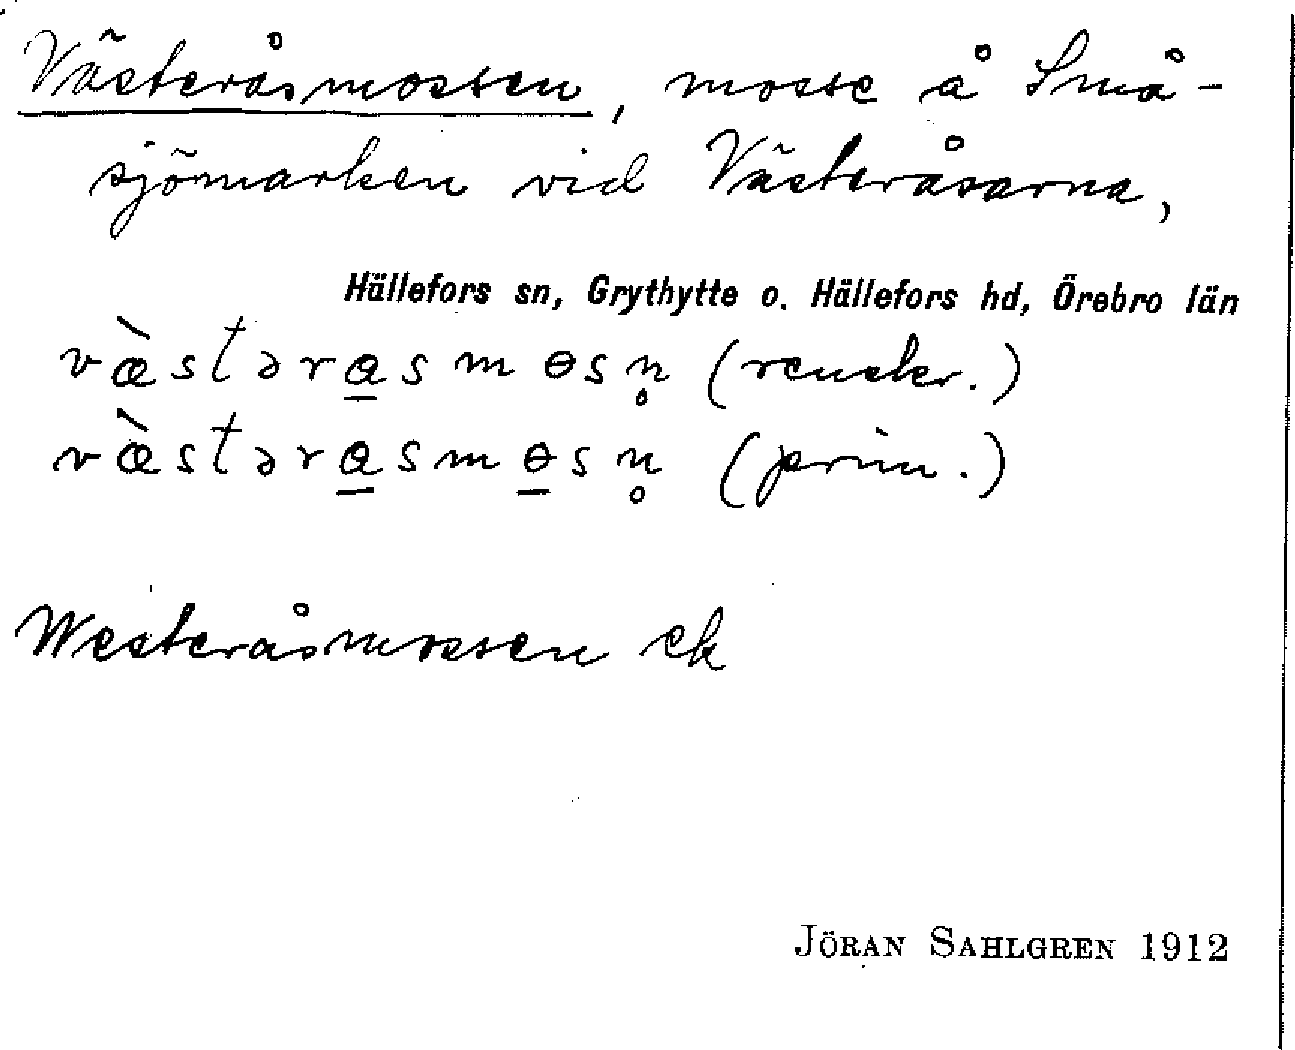 Västeråsmossen, mosse å Små-
sjömarken vid Västeråsarna,
Hällefors sn, Grythytte o. Hällefors hd, Örebro län
væ̀stəra̲smɵsn̥ (renskr.)
væ̀stəra̲smɵ̲sn̥ (prim.)
Westeråsmossen ek
JÖRAN SAHLGREN 1912